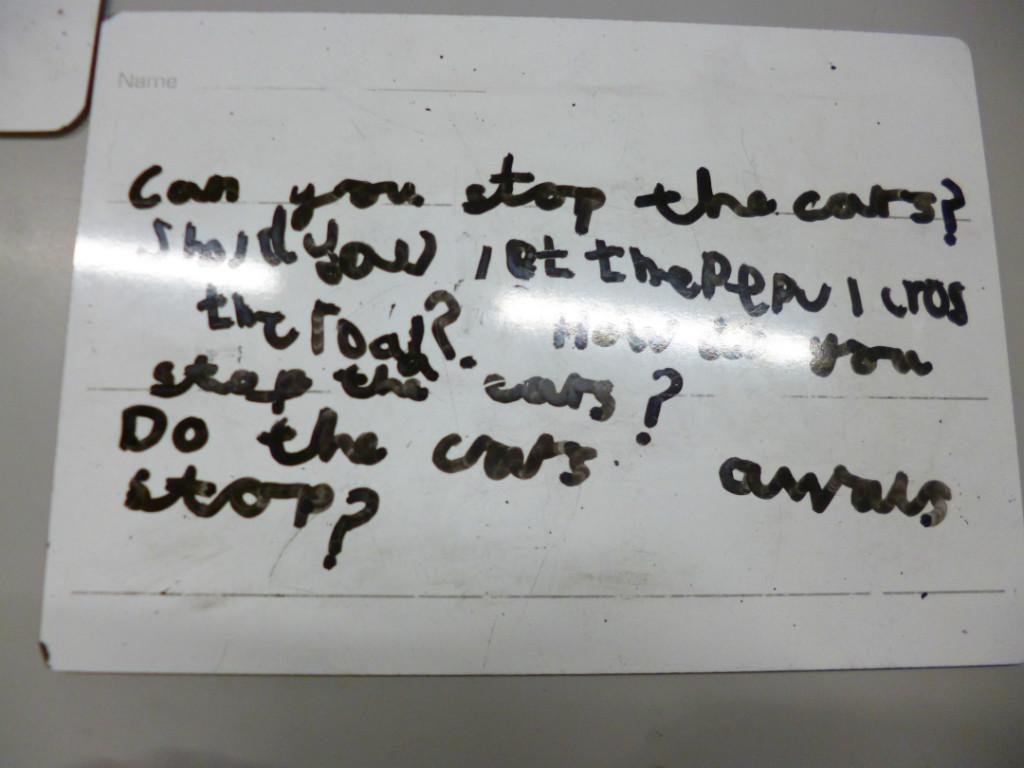 Name
Can you stop the cars?
Shold you let the pepul cros
the road? How do you
stop the cars?
Do the cars awaus
stop?